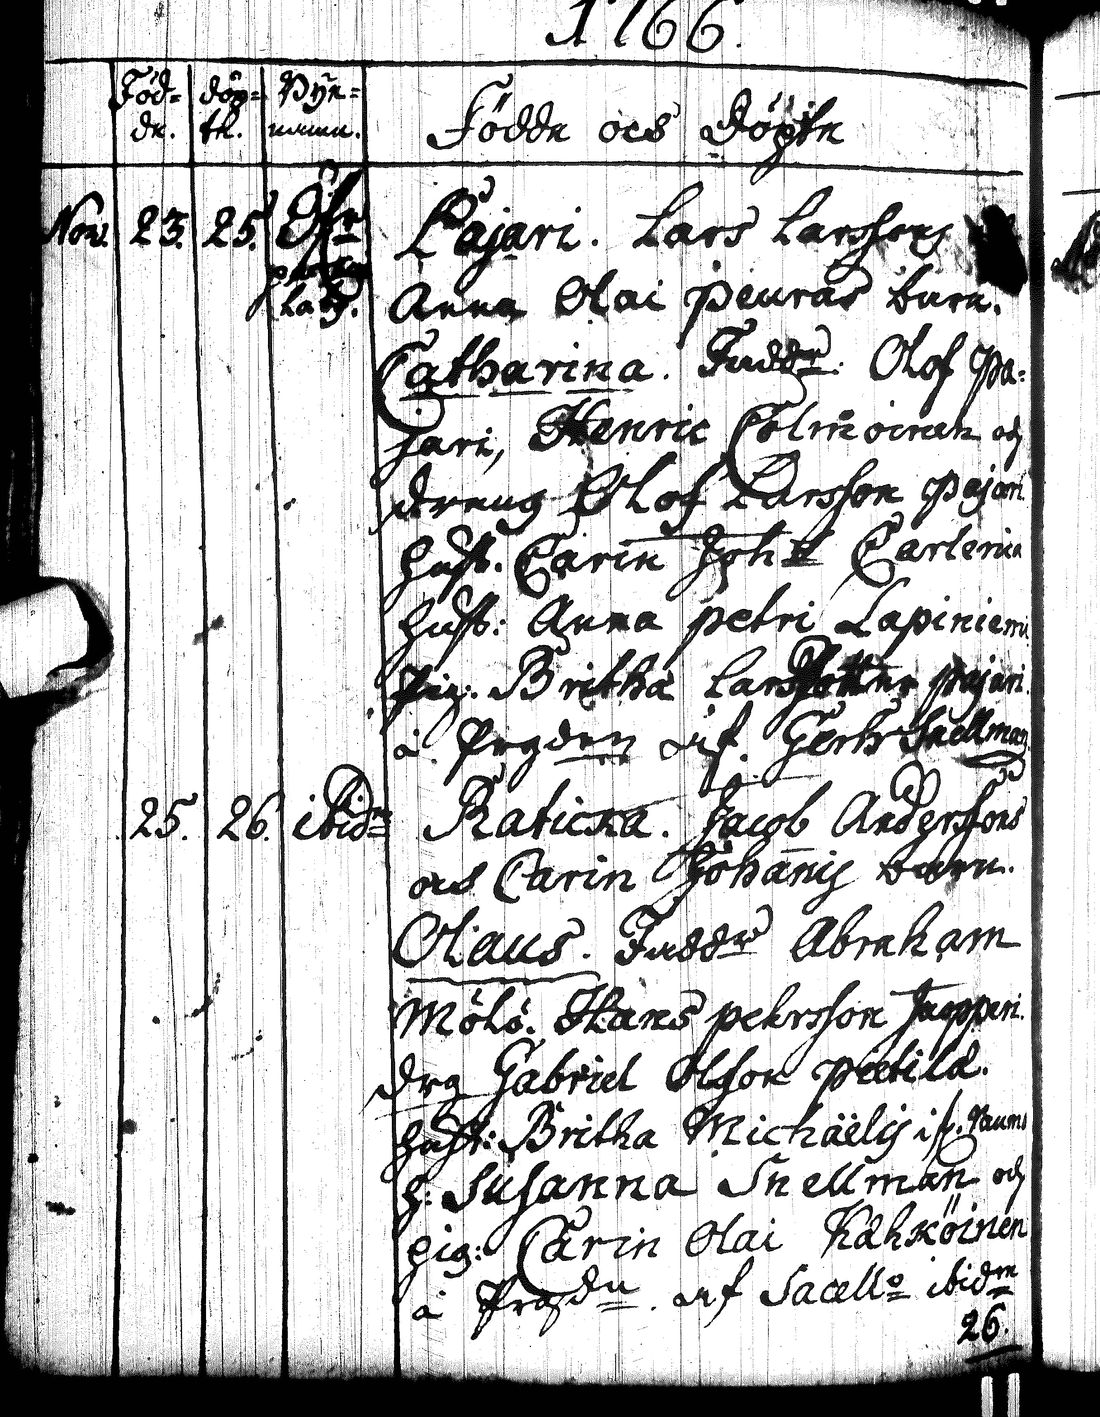 1766.
Föd= döp= Byn=
de. te. namn. Födde och Döpte
Nov. 23. 25. Pajari. Lars Larssons
Anna Olai Peuras barn.
Catharina. Faddr. Olof Pa=
jari, Henric Colmoinen och
dräng Olof Larsson Pajari
hust. Carin Joh: Carleria
hust: Anna Petri Lapiniemi
pig. Britha Lars Pajari.
à Prgdn af. Saellman
25. 26. ibidm Raticka. Jacob Anderssons
och Carin Johanis barn.
Olaus. Faddr Abraham
Mölö. Hans Pehrsson Juopperi.
drg Gabriel Olsson Pietilä.
hust: Britha Michäelis
h: Susanna Snellman och
pig: Carin Olai Kähköinen
à Prgdn. af Sacello ibidm
26.